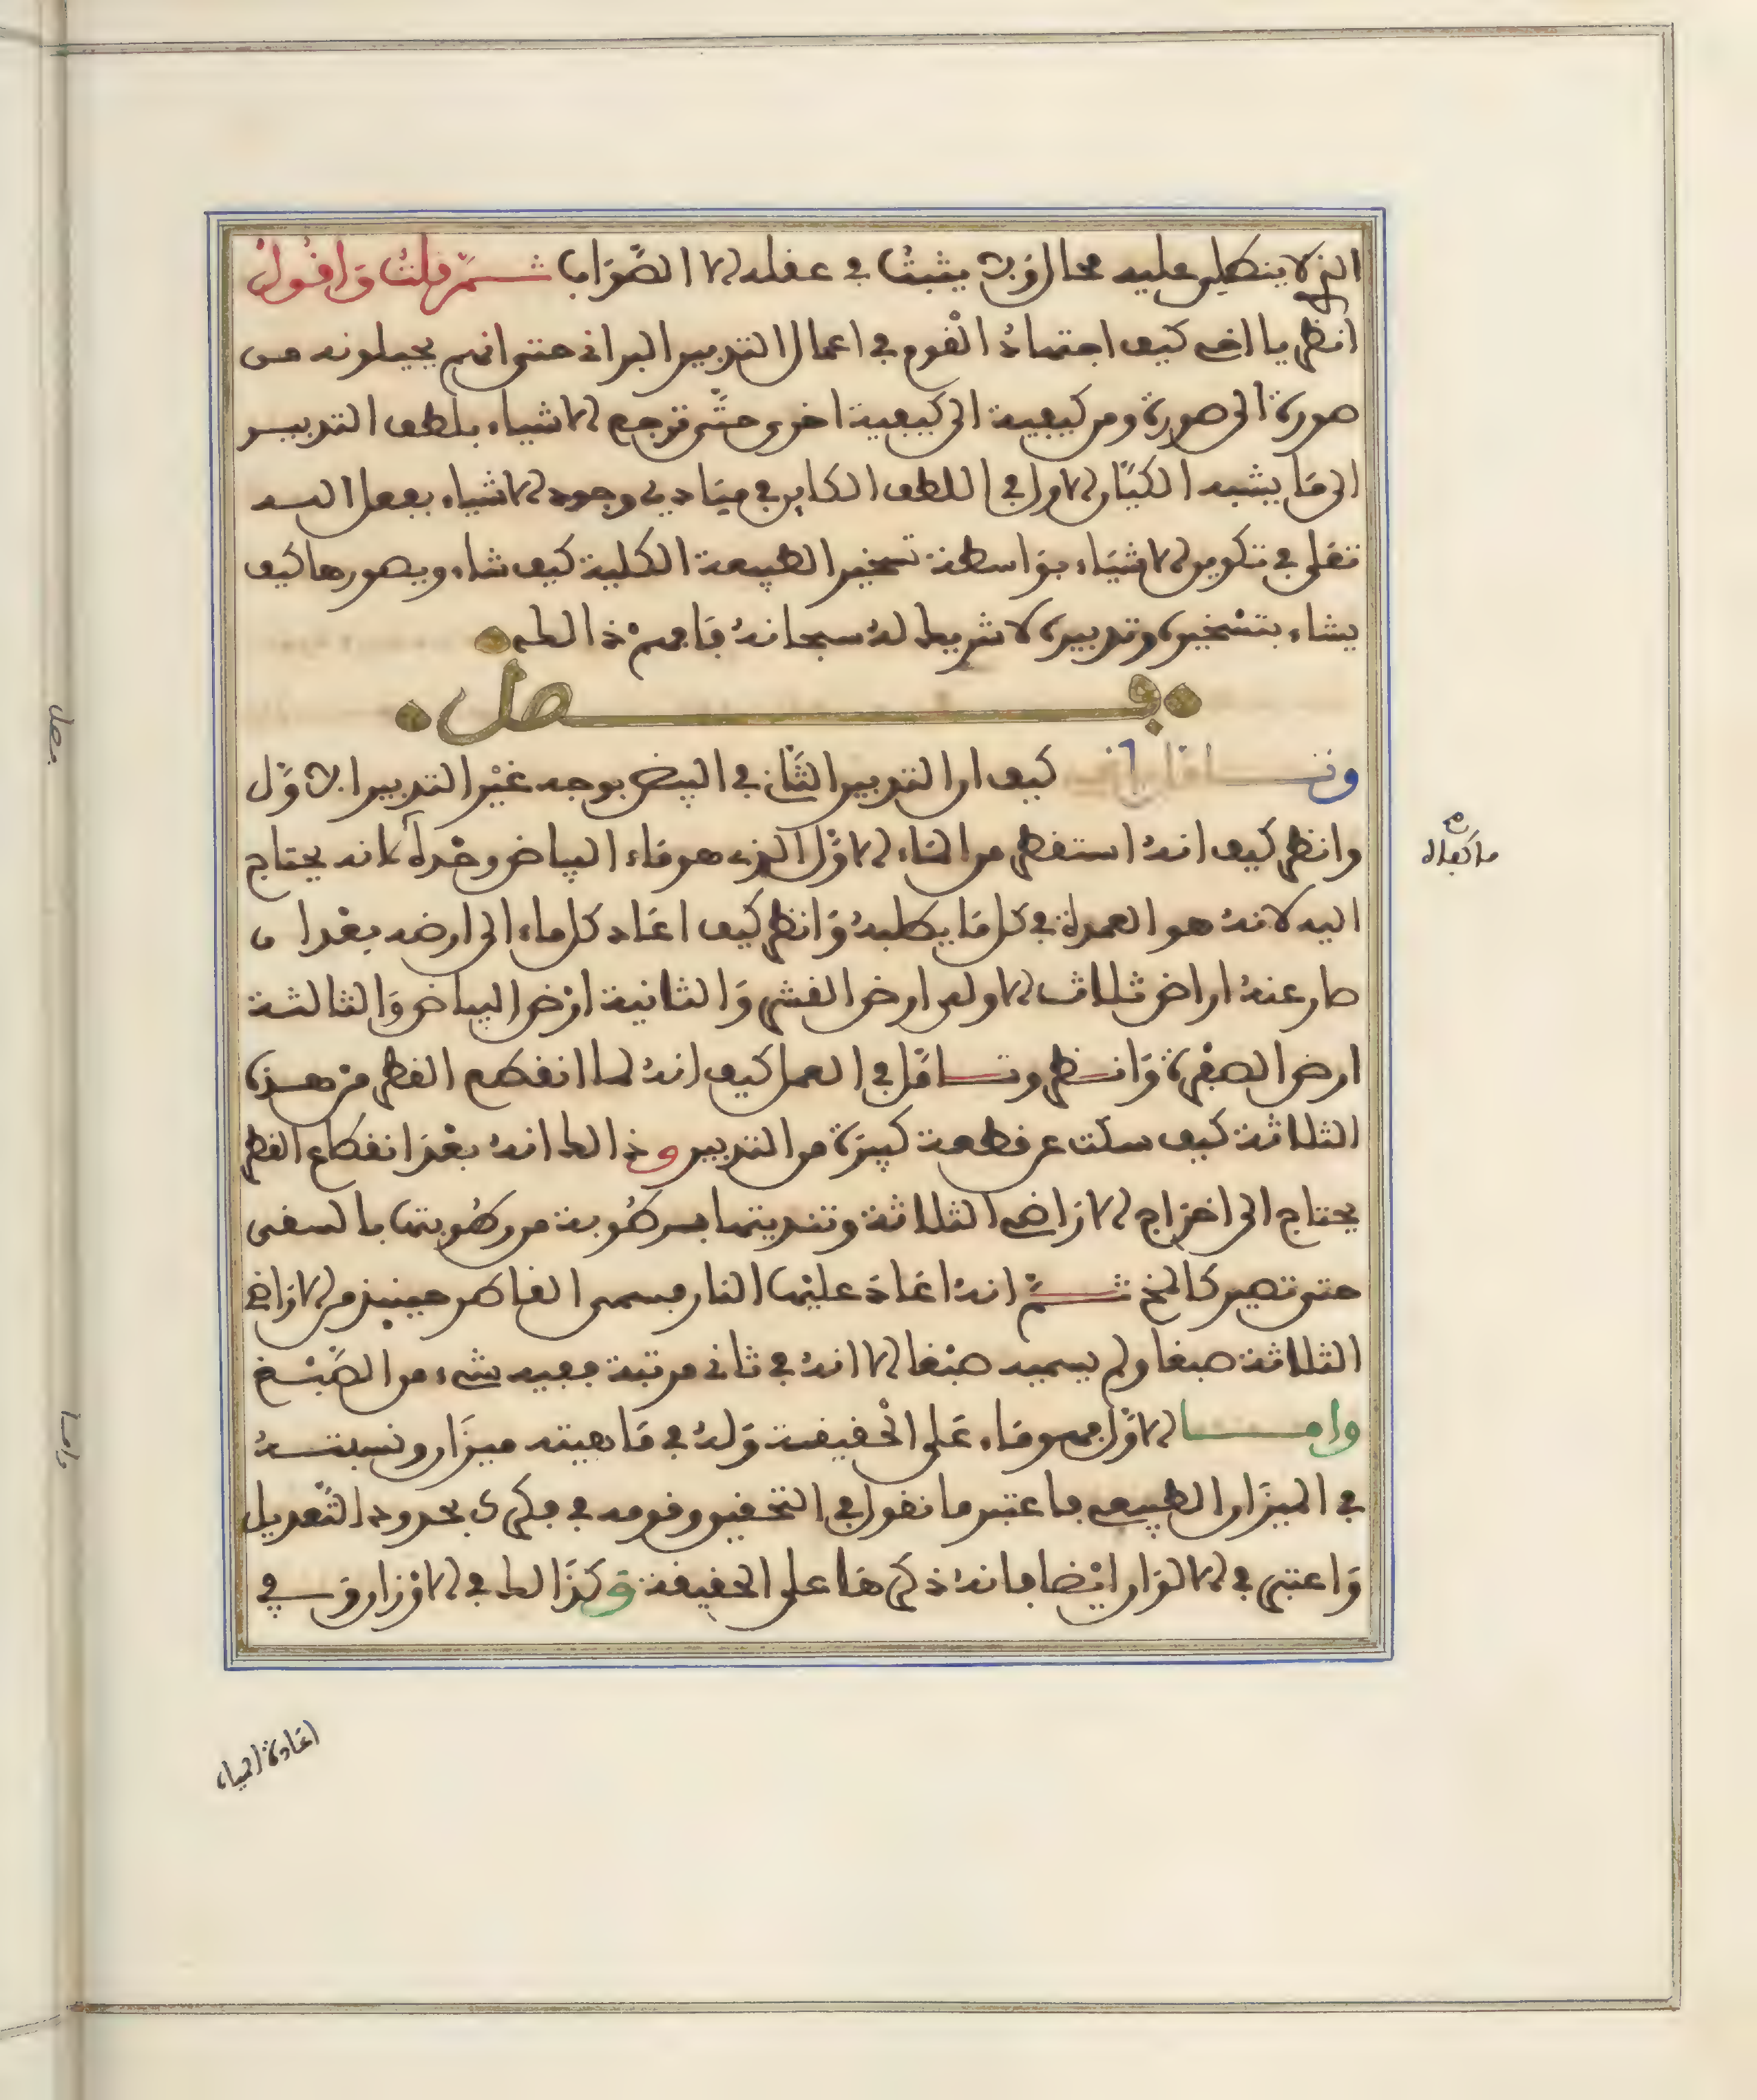 الذي لا ينطلي عليه محال ولا يثبت في عقله الا الصواب ثم قلت واقول
انظر يا اخي كيف اجتهاد القوم في اعمال التدبير البراني حتى انهم يحيلونه من
صورة الى صورة ومن كيفية الى كيفية اخرى حتى ترجع الاشياء بلطف التدبير
الى ما يشبه الكيان الاول في اللطف الكاين في مبادي وجود الاشياء بفعل الله
تعلى في تكوين الاشياء بواسطة تسخير الطبيعة الكلية كيف شاء ويصورها كيف
يشاء بتسخيره وتدبيره لا شريك له سبحانه فافهم ذالك
فصل
وتامل كيف ان التدبير الثاني في البيض بوجه غير التدبير الاول
وانظر كيف انه استقطر من الماء الاول الذي هو ماء البياض وحده لانه يحتاج
اليه لانه هو العمدة في كل ما يطلبه وانظر كيف اعاد كل ماء الى ارضه بعد ان
صار عنده اراض ثلاث الاولى ارض القشر والثانية ارض البياض والثالثة
ارض الصفرة وانظر وتامل في العمل كيف انه لما انقطع القطر من هذه
الثلاثة كيف سكت عن قطعة كبيرة من التدبير وذالك انه بعد انقطاع القطر
يحتاج الى اخراج الاراضي الثلاثة وتنديتها برطوبة من رطوبتها بالسقى
حتى تصير كالمخ ثم انه اعاد عليها النار فسمى القاطر حينيذ من الاراضي
الثلاثة صبغا ولم يسميه صبغا الا انه في ثاني مرتبة ففيه شيء من الصبغ
واما الاول فهو ماء على الحقيقة وله في ماهيته ميزان ونسبته
في الميزان الطبيعي فاعتبر ما نقول في التحقيق وقومه في فكرك بحدود التعديل
واعتبر في الالوان ايضا فانه ذكرها على الحقيقة وكذالك في الاوزان وفي
اعادة المياه